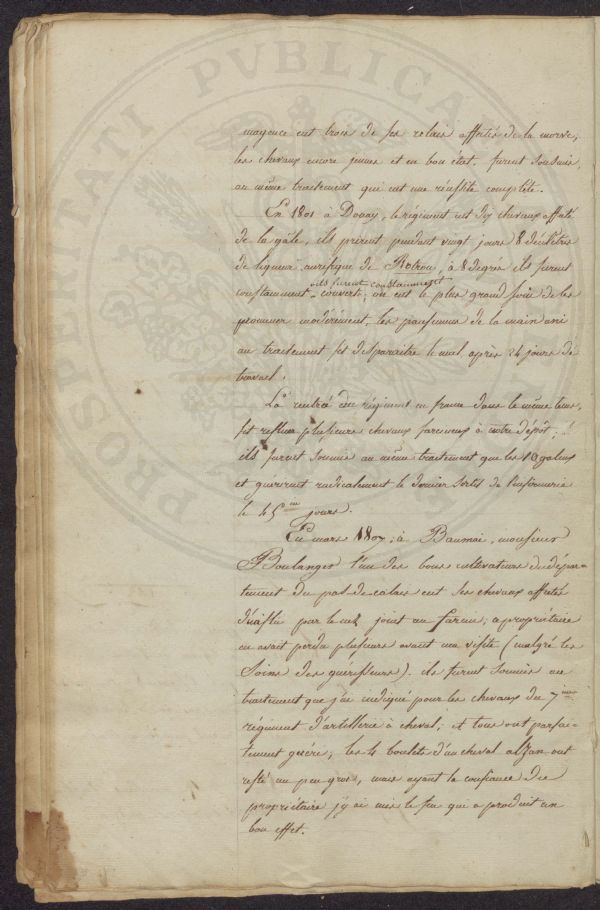 PROSPERITATI PVBLICAE
mayence eut trois de ses relais affectés de la morve,
les chevaux encore jeunes et en bon état, furent soumis
au même traitement qui eut une réussite complète.
En 1801 à Douay, le régiment eut dix chevaux affecté
de la gâle, ils prirent pendant vingt jours 8 décilitres
de liqueur aurifique de Rotrou, à 8 degrés ils furent
ils furent constamment
constamment couvert; on eut le plus grand soin de les
promener modérément, les pansemens de la main uni
au traitement fit disparaitre le mal après 24 jours de
travail.
La rentrée du régiment en france dans le même tems,
fit refluer plusieurs chevaux farcineux à notre dépôt;
ils furent soumis au même traitement que les 10 galeux
et guerirent radicalement le dernier sortit de l'infirmerie
le 45me jours.
En mars 1807, à Baumai, monsieur
Boulanger l'un des bons cultivateurs du dépar-
tement du pas-de-calais eut ses chevaux affecté
par le mal joint au farcin; ce propriétaire
en avait perdu plusieurs avant ma visite (malgré les
Soins des guérisseurs). ils furent soumis au
traitement que j'ai indiqué pour les chevaux du 7me
régiment d'artillerie à cheval, et tous ont parfai-
tement guéri; les 4 boulets d'un cheval alzan ont
resté un peu gros, mais ayant la confiance du
propriétaire j'y ai mis le feu qui a produit un
bon effet.